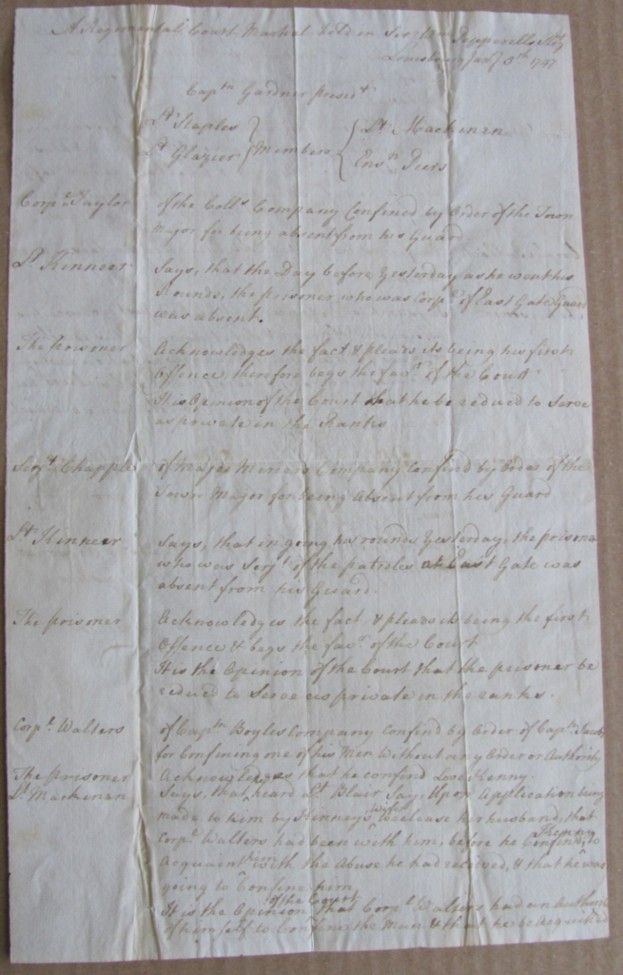 A Regimental Court Martial held in Sir Wm Pepperells Regt
Louisbourg Jany 5th 1747
Captn Gardner presidt
Lt Staples
Lt Glazier
Members
Lt Mackenan
Ensn Peers
Corpl Taylor of the Colls Company Confined by Order of the Town
Major for being absent from his Guard
Lt Kenneer Says, that the Day before Yesterday as he went his
Rounds, the prisoner who was Corpl of East Gate Guard
was absent.
The Prisoner Acknowledges the fact & pleads its being his first
Offence, therefore begs the favr of the Court
It is Opinion of the Court that he be reduced to Serve
as private in the Ranks
Serjt Chapple of Major Company Confined by Order of the
Town Major for being Absent from his Guard
Lt Kenneer Says, that in going his rounds Yesterday, the prisoner
who was Serjt of the patroles at East Gate was
absent from his Guard.
The prisoner Acknowledges the fact & pleads its being the first
Offence & begs the favr of the Court
It is the Opinion of the Court that the prisoner be
reduced to Serve as private in the ranks.
Corpl Walters of Captn Boyles Company Confind by Order of Captn
for Confining one of his Men Without any Order or Authority
The prisoner Acknowledges that he confind Kenny.
Lt Mackenan Says, that heard Lt Blair Say, Upon Application being
made to him by Kenneys Wife to release her husband, that
Corpl Walters had been with him, before he Confind Kenny, to
acquaint him with the Abuse he had received, & that he was
going to Confine him
It is the Opinion of the Court that Corpl Walters had an Authority
of himself to Confine the Man & that he be Acquitted